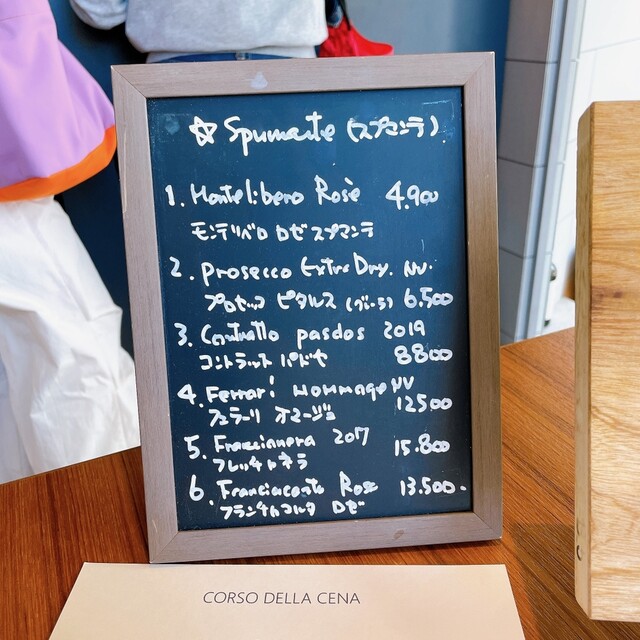 ☆ Spumante (スプマンテ)
1. Montelibero Rosè 4.900
モンテリベロ ロゼ スプマンテ
2. Prosecco Extra Dry. NV.
プロセッコ ピタルス 6.500
3. Contratto pasdos 2019
コントラット パドゼ 8800
4. Ferrari Hommage NV
フェラーリ オマージュ 12500
5. Francianera 2017 15.800
フレッチャネラ
6. Franciacorta Rose 13.500.
フランチャコルタ ロゼ
CORSO DELLA CENA